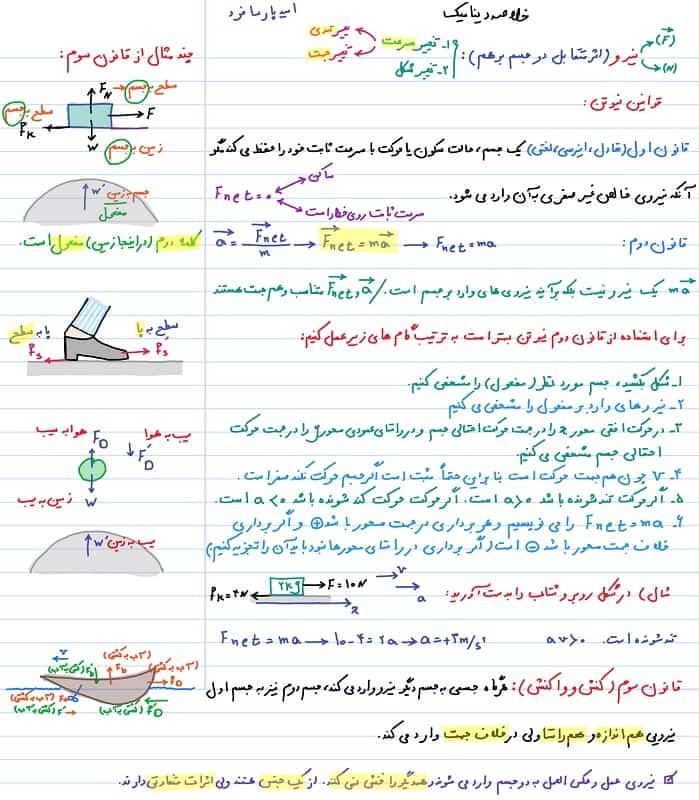 خلاصه دینامیک
امید پارسا فرد
نیرو (اثر متقابل دو جسم بر هم):
(F)
(N)
۱- تغییر سرعت
تغییر تندی
تغییر جهت
۲- تغییر شکل
قوانین نیوتن:
قانون اول (تعادل، اینرسی، لختی) یک جسم، حالت سکون یا حرکت با سرعت ثابت خود را حفظ می کند مگر
آنکه نیروی خالص غیر صفری به آن وارد می شود.
Fnet = ۰
ساکن
سرعت ثابت روی خط راست
قانون دوم: a = Fnet / m → Fnet = ma → Fnet = ma
ma یک نیرو نیست بلکه برآیند نیروی های وارد بر جسم است. / a و Fnet متناسب و هم جهت هستند
برای استفاده از قانون دوم نیوتن بهتر است به ترتیب گام های زیر عمل کنیم:
۱- شکل بکشید، جسم مورد نظر (مفعول) را مشخص کنیم.
۲- نیروهای وارد بر مفعول را مشخص می کنیم
۳- در حرکت افقی محور x را در جهت حرکت احتمالی جسم و در راستای عمودی محور y را در جهت حرکت
احتمالی جسم مشخص می کنیم.
۴- v چون هم جهت حرکت است بنابراین حتماً مثبت است اگر جسم حرکت نکند صفر است.
۵- اگر حرکت تند شونده باشد a>۰ است. اگر حرکت کند شونده باشد a<۰ است.
۶- Fnet = ma را می نویسیم و هر برداری در جهت محور باشد ⊕ و اگر برداری
خلاف جهت محور باشد ⊖ است (اگر برداری در راستای محورها نبود باید آن را تجزیه کنیم)
مثال) در شکل روبرو شتاب را بدست آورید:
fk=۴N
۲kg
F=۱۰N
v
a
x
تند شونده است. av>۰
Fnet = ma → ۱۰-۴=۲a → a=+۳m/s²
قانون سوم (کنش و واکنش): هرگاه جسمی به جسم دیگر نیرو وارد می کند، جسم دوم نیز به جسم اول
نیرویی هم اندازه و هم راستا ولی در خلاف جهت وارد می کند.
نیروی عمل و عکس العمل به دو جسم وارد می شوند و همدیگر را خنثی نمی کنند. از یک جنس هستند ولی اثرات متفاوتی دارند.
چند مثال از قانون سوم:
FN → سطح به جسم
سطح به جسم
fk
F
W
زمین به جسم
W'
جسم به زمین
مفعول
کلمه دوم (در اینجا زمین) مفعول است.
سطح به پا
پا به سطح
fs
f's
هوا به سیب
FD
سیب به هوا
F'D
W
زمین به سیب
W'
سیب به زمین
v
(آب به کشتی)
Fb
(آب به کشتی)
fD
(کشتی به آب)
(آب به کشتی)
(کشتی به آب)
F'
(کشتی به آب)
f'D